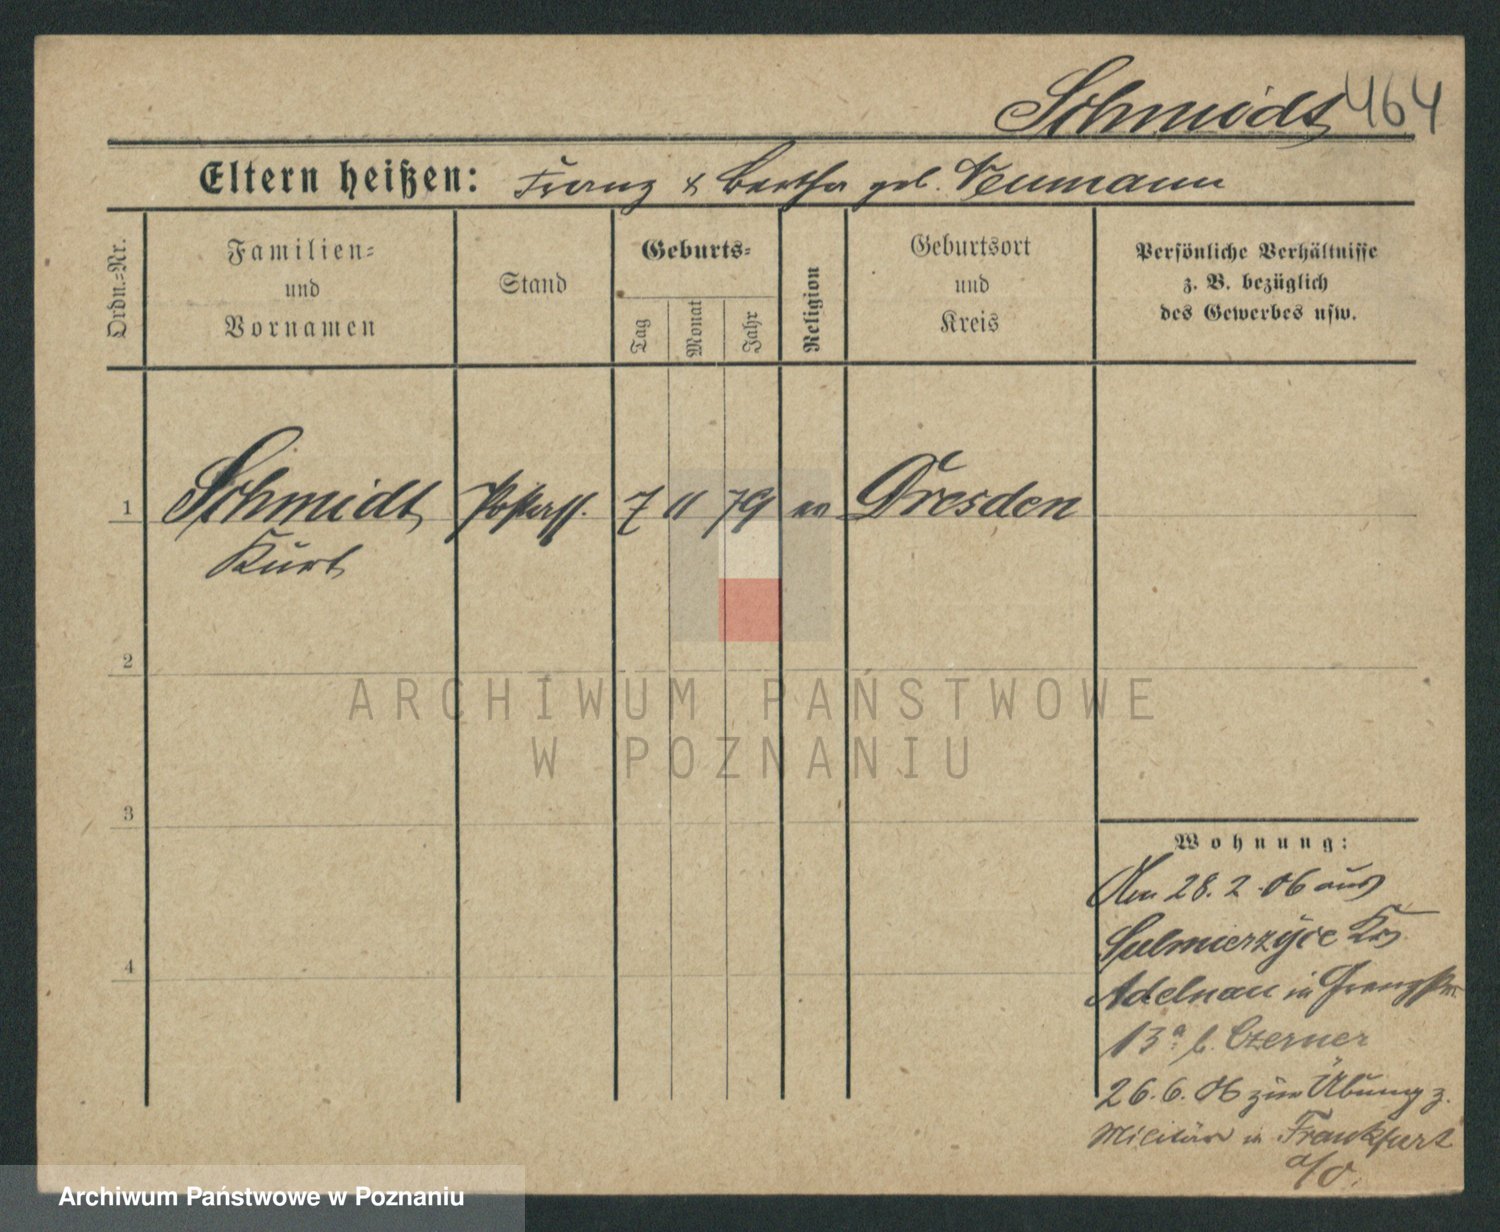 Schmidt 464
Eltern heißen: Franz & Bertha geb. Neumann
Ordn.=Nr.
Familien=
und
Vornamen
Stand
Geburts=
Tag
Monat
Jahr
Religion
Geburtsort
und
Kreis
Persönliche Verhältnisse
z. B. bezüglich
des Gewerbes usw.
1 Schmidt Postass. 7 11 79 ev Dresden
Kurt
2
3
4
Wohnung:
Am 28.2.06 aus
Sulmierzyce Krs
Adelnau in
13a b. Czerner
26.6.06 zur Übung z.
Militär in Frankfurt
a/O.
ARCHIWUM PAŃSTWOWE
W POZNANIU
Archiwum Państwowe w Poznaniu